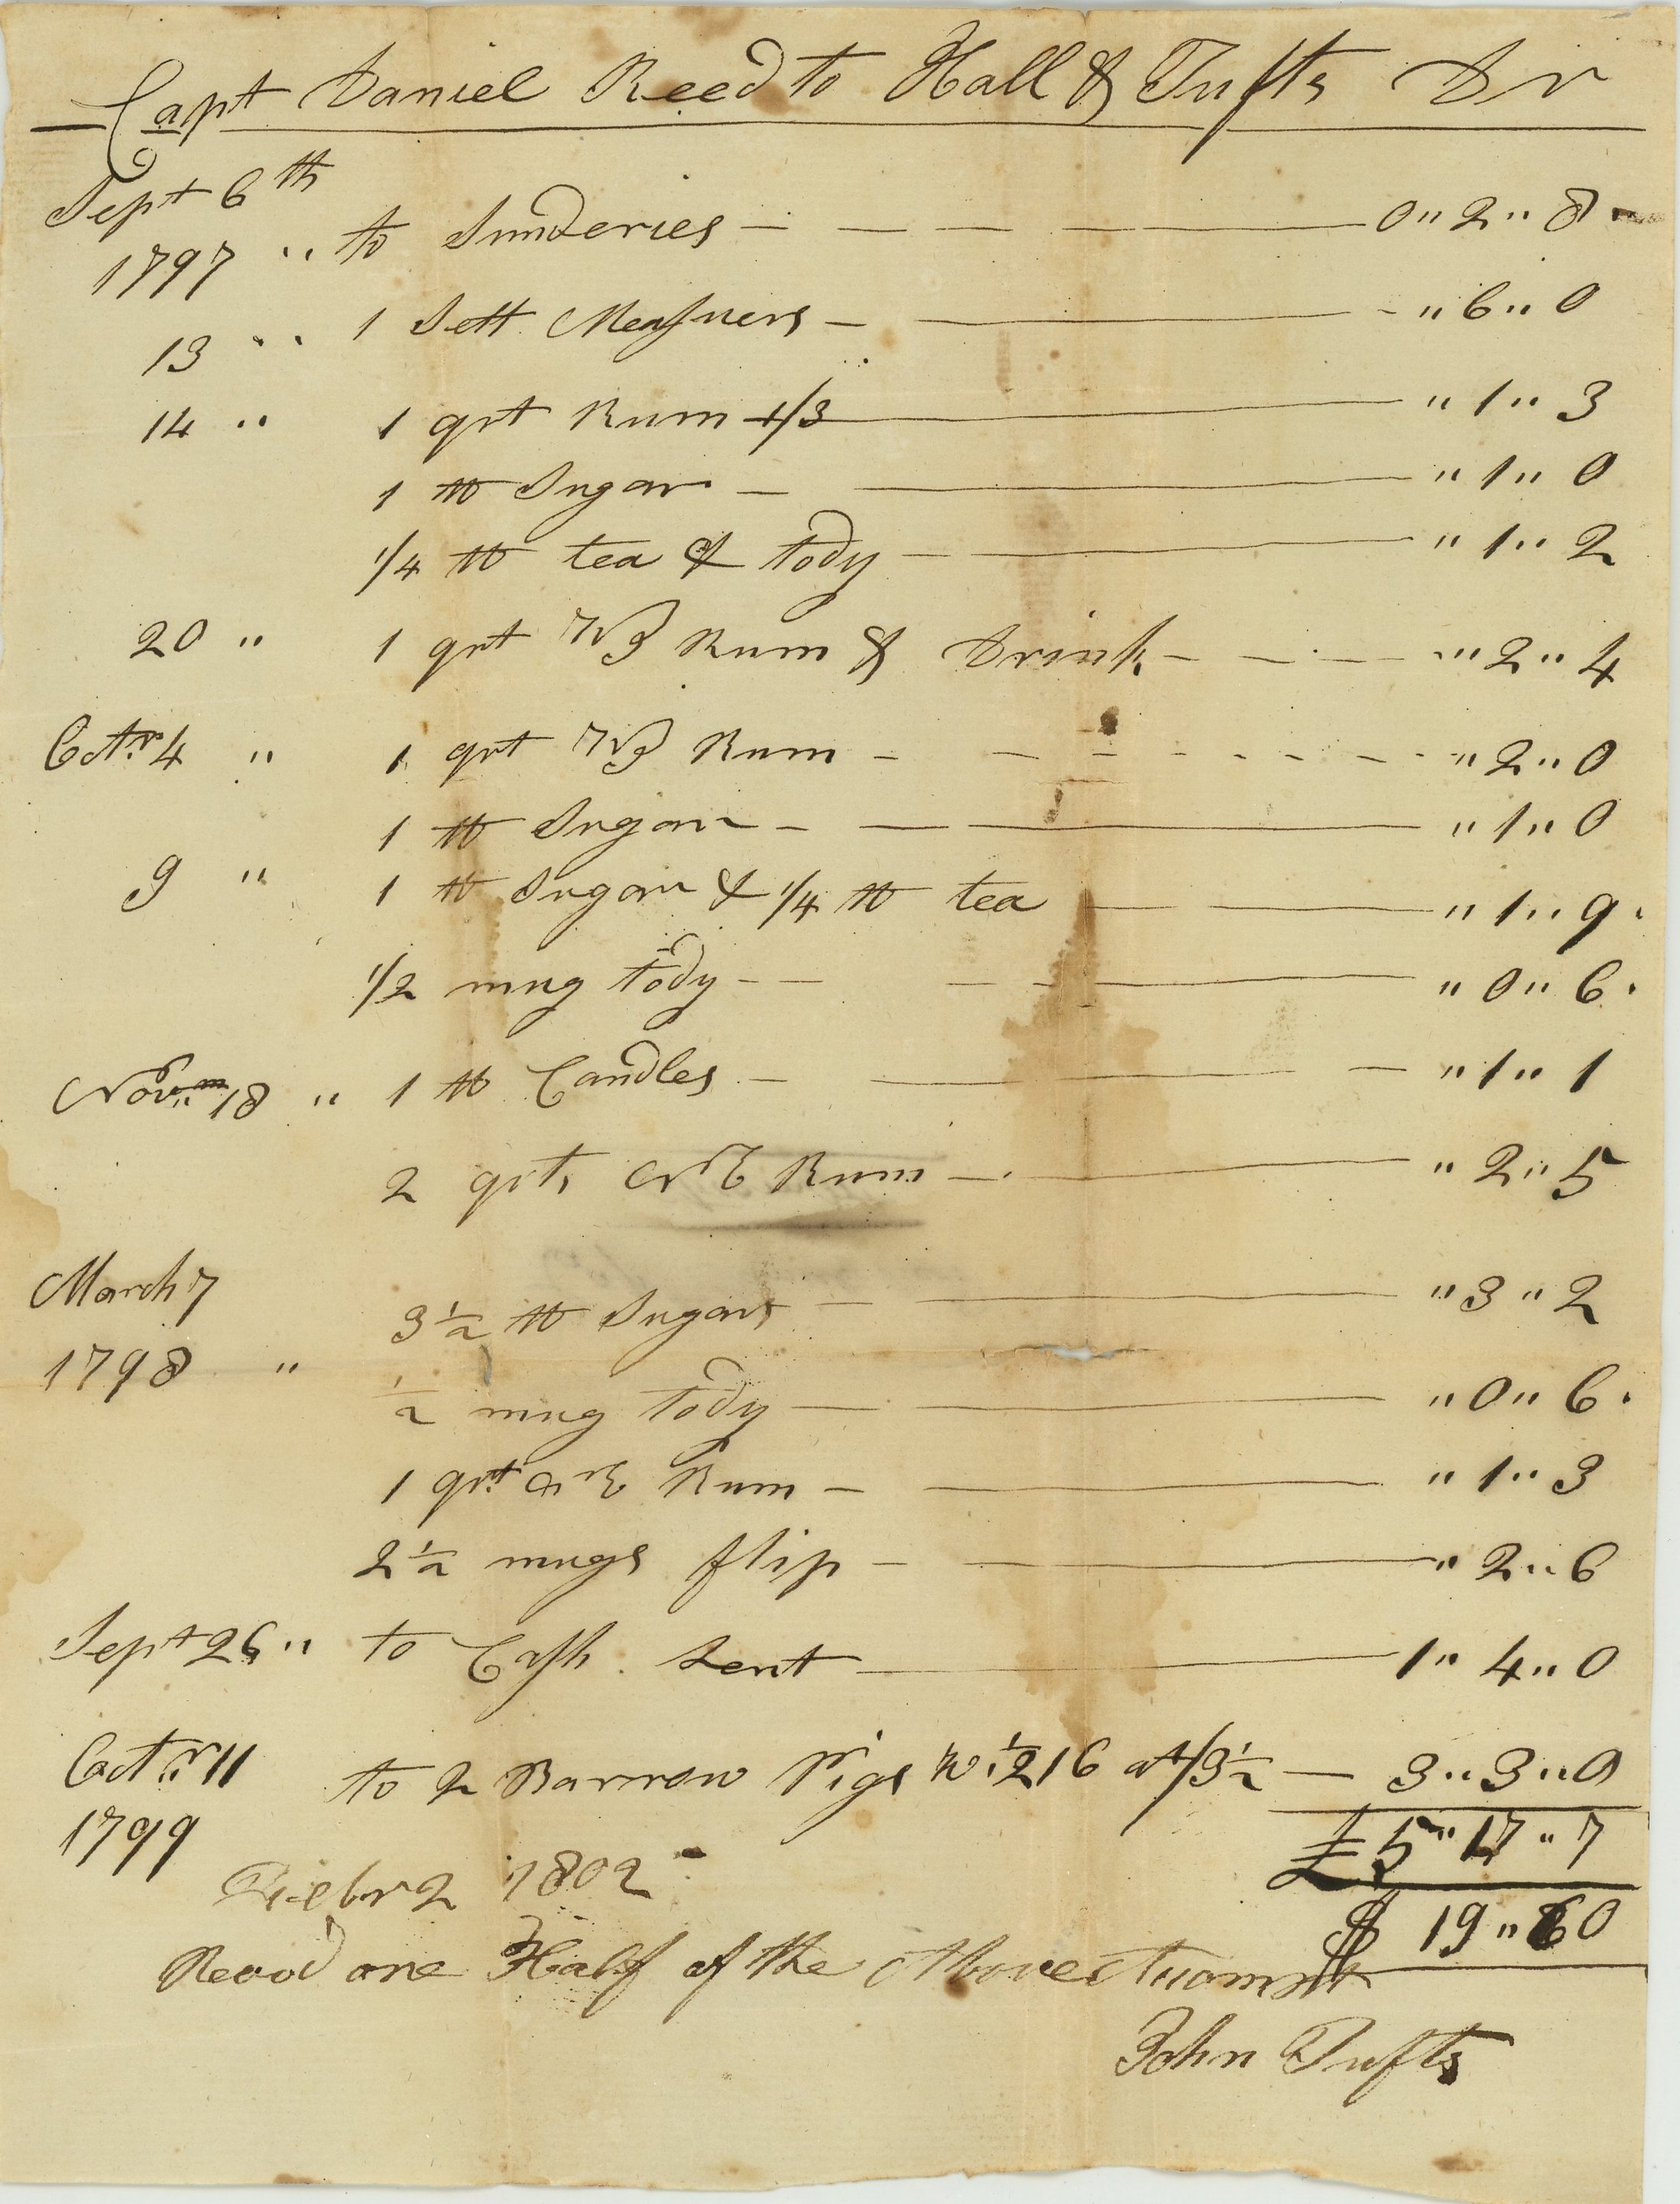 Capt Daniel Reed to Hall & Tufts Dr
Sept 6th
1797 " to Sunderies — 0 " 2 " 8
13 " 1 Sett Measuers — " 6 " 0
14 " 1 qrt Rum 1/3 — " 1 " 3
1 lb Sugar — " 1 " 0
1/4 lb tea & tody — " 1 " 2
20 " 1 qrt WI Rum & Drink — " 2 " 4
Octr 4 " 1 qrt WI Rum — " 2 " 0
1 lb Sugar — " 1 " 0
9 " 1 lb Sugar & 1/4 lb tea — " 1 " 9
1/2 mug tody — " 0 " 6
Novm 18 " 1 lb Candles — " 1 " 1
2 qrts NE Rum — " 2 " 5
March 7
1798 " 3 1/2 lb Sugars — " 3 " 2
1/2 mug tody — " 0 " 6
1 qrt NE Rum — " 1 " 3
2 1/2 mugs flip — " 2 " 6
Sept 26 " to Cash Lent — 1 " 4 " 0
Octr 11
1799 to 2 Barrow Pigs wt 216 at /3 1/2 — 3 " 3 " 0
£ 5 " 17 " 7
$ 19 " 60
Febr 2 1802
Recod one Half of the Above Auompt
John Tufts